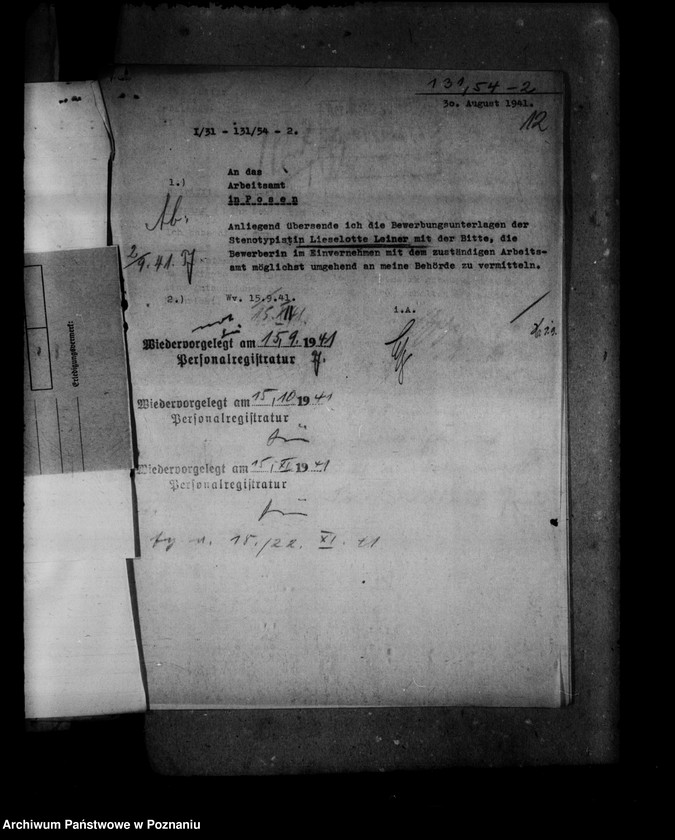 131,54-2
30. August 1941.
12
I/31 - 131/54 - 2.
1.)
An das
Arbeitsamt
in Posen
Ab.
Anliegend übersende ich die Bewerbungsunterlagen der
Stenotypistin Lieselotte Leiner mit der Bitte, die
Bewerberin im Einvernehmen mit dem zuständigen Arbeits-
amt möglichst umgehend an meine Behörde zu vermitteln.
2/9.41.
2.)
Wv. 15.9.41.
I.A.
Wiedervorgelegt am 15.9. 1941
Personalregistratur
Erledigungsvermerk:
Wiedervorgelegt am 15.10 1941
Personalregistratur
Wiedervorgelegt am 15.XI 1941
Personalregistratur
18./22. XI. 41
Archiwum Państwowe w Poznaniu